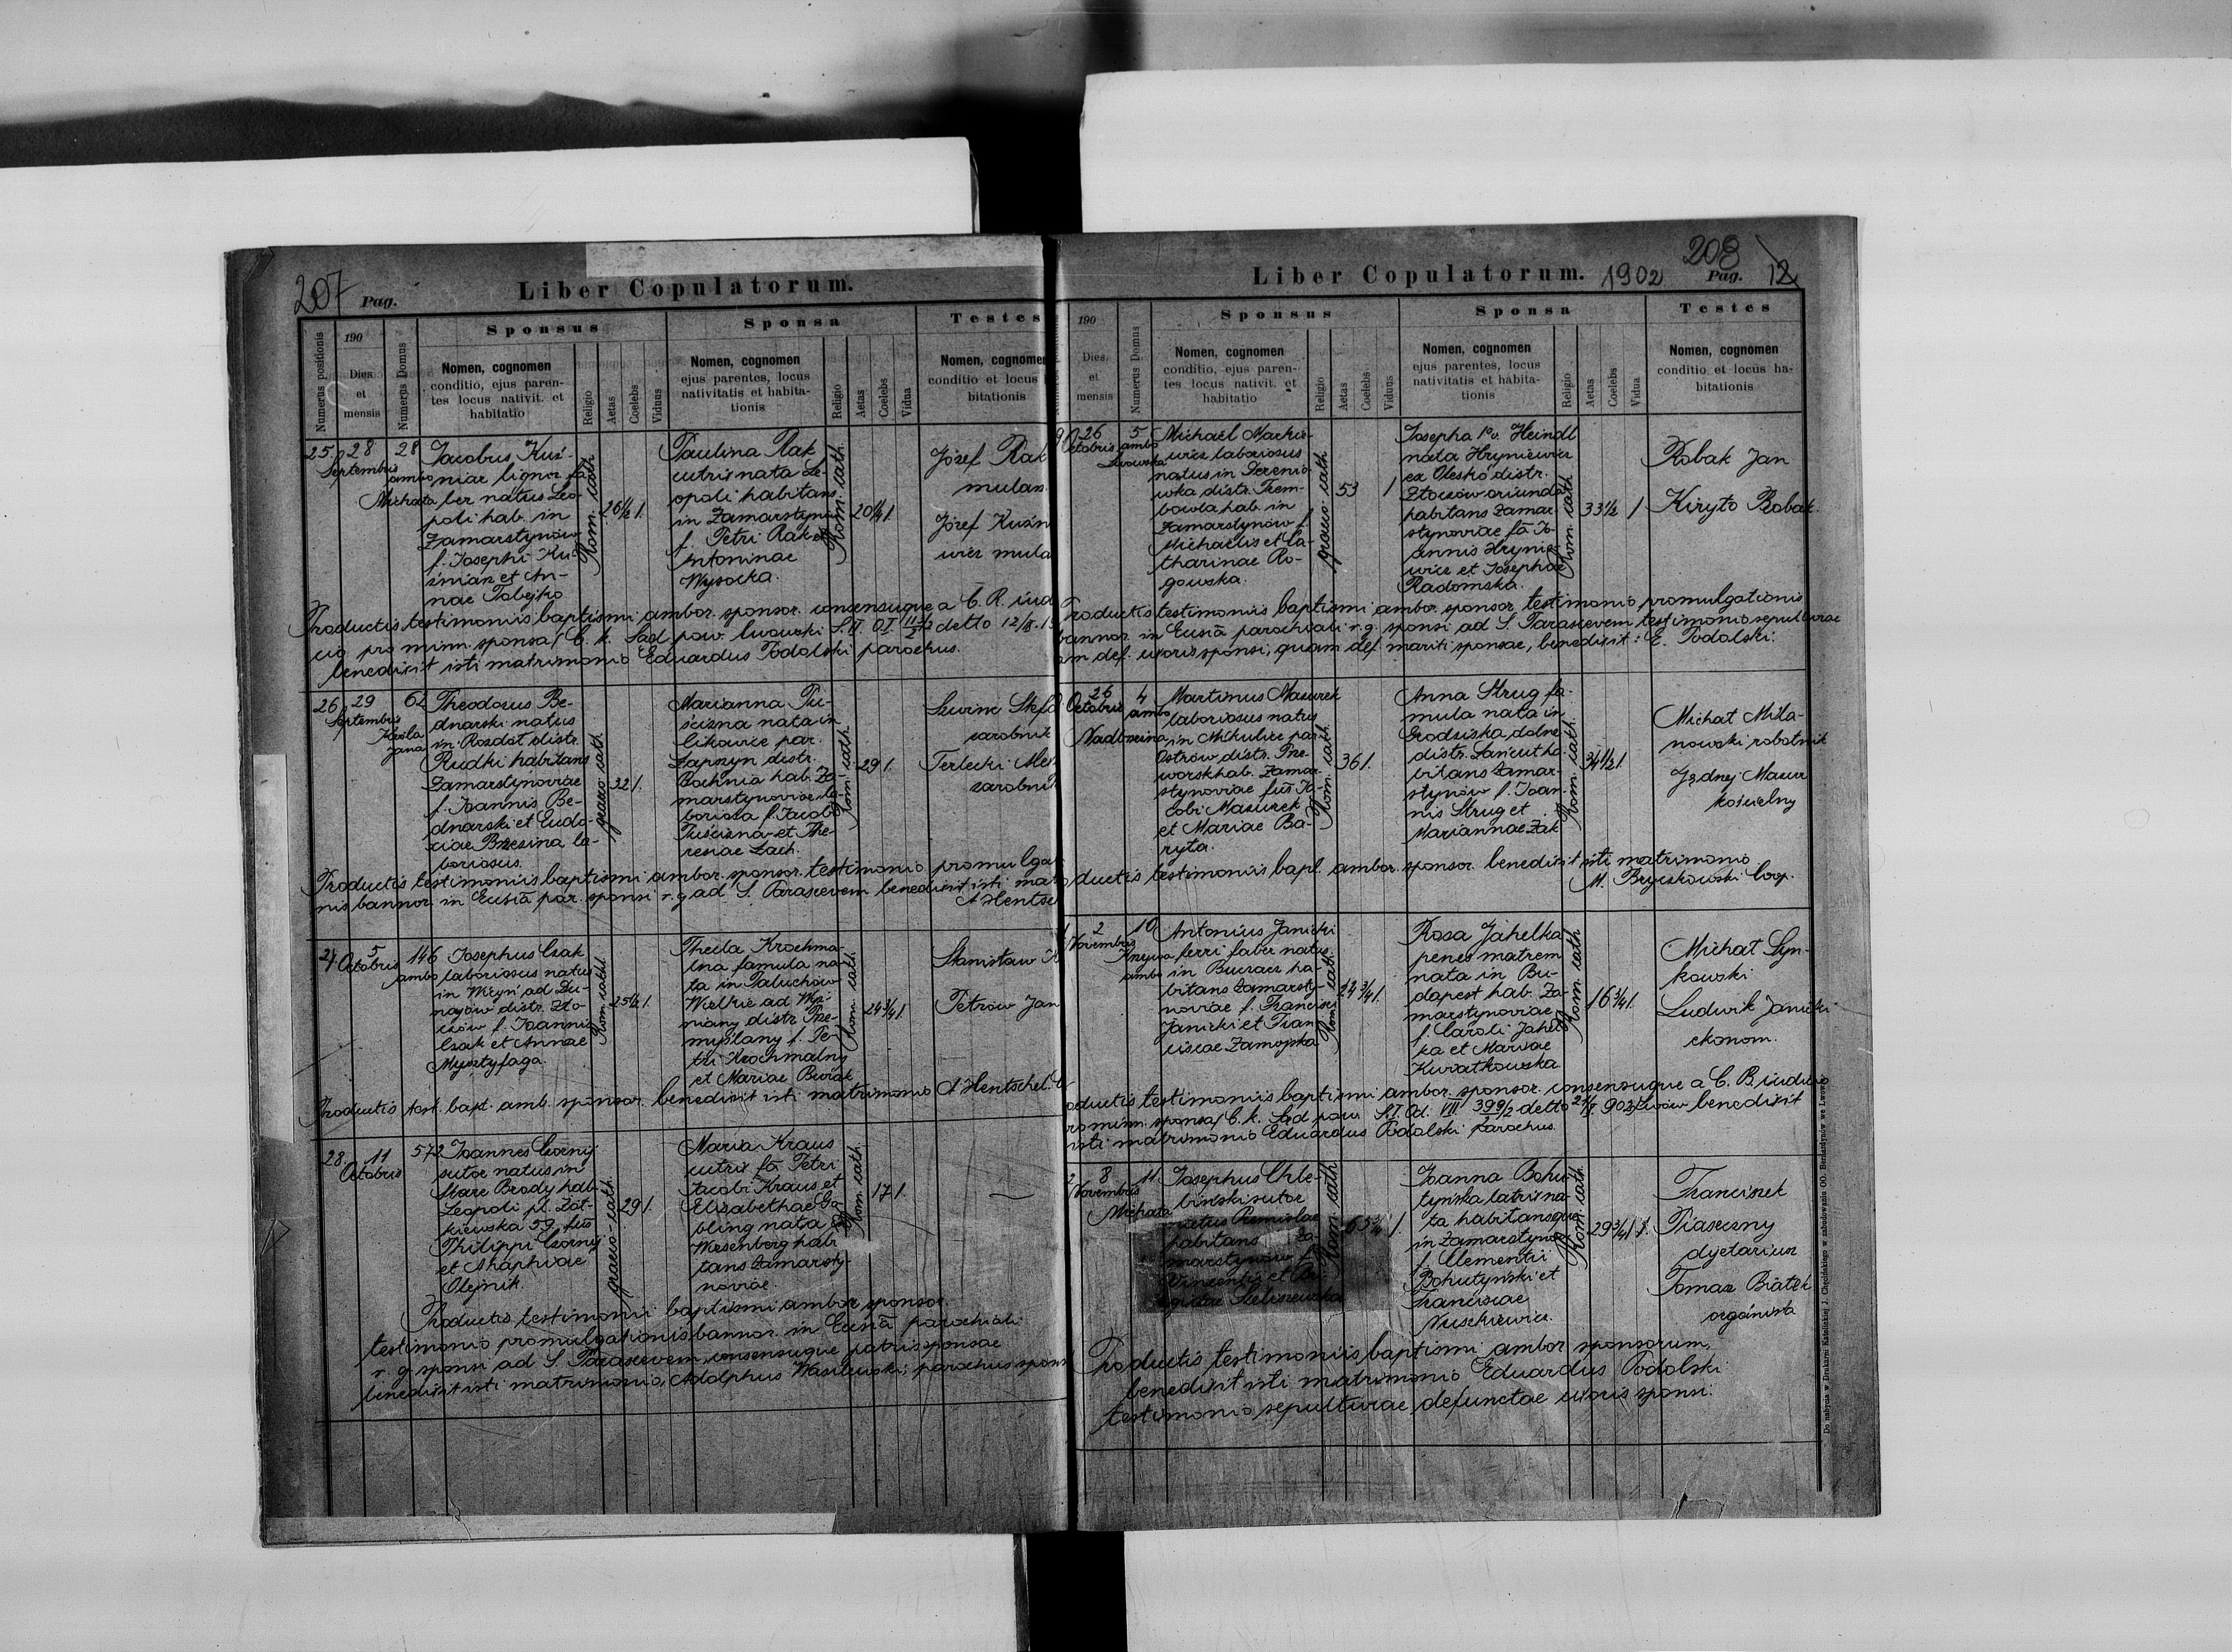 207 Pag.
Liber Copulatorum.
Numerus positionis
190
Dies
et
mensis
Numerus Domus
Sponsus
Nomen, cognomen
conditio, ejus paren-
tes locus nativit. et
habitatio
Religio
Aetas
Coelebs
Viduus
Sponsa
Nomen, cognomen
ejus parentes, locus
nativitatis et habita-
tionis
Religio
Aetas
Coelebs
Vidua
Testes
Nomen, cognomen
conditio et locus
bitationis
25. 28 Septembris
28 ambo
Michała
Jacobus Kuź-
niar lignor. fa
ber natus Leo
poli hab. in
Zamarstynów
f. Josephi Ku-
źniar et An-
nae Tobejko
Rom. cath.
26 1/2 1.
Paulina Rak
cutrix nata Le-
opoli habitans
in Zamarstynów
f. Petri Rak et
Antoninae
Wysocka.
Rom. cath.
20 1/4 1.
Józef Rak
mularz
Józef Kuźn
wicz mula
Productis testimoniis baptismi ambor. sponsor. consensuque a C. R. iud
cio pro minn. sponsa / C. k. Sąd pow. lwowski S. II. detto
benedixit isti matrimonio Eduardus Podolski parochus.
26 29 Septembris
62
Króla
Jana
Theodosus Be-
dnarski natus
in Rozdół distr.
Rudki habitans
Zamarstynoviae
f. Joannis Be-
dnarski et Eudo-
xiae Brzezina la-
boriosus.
graeco-cath.
32 1.
Marianna Pu-
ścizna nata in
Cikowice par.
Łapszyn distr.
Bochnia hab. Za-
marstynoviae la-
boriosa f. Jacobi
Puścizna et The-
resiae Lach.
Rom. cath.
29 1.
zarobnik
Terlecki
zarobnik
Productis testimoniis baptismi ambor. sponsor. testimonio promulga
nis bannor. in Ecclsiā par. sponsi r. g. ad S. Parascevem benedixit isti ma
A Hentsc
27 5 Octobris
146 ambo
Josephus Czak
laboriosus natus
in Wiczyń ad Du-
najów distr. Zło-
czów f. Joannis
Czak et Annae
Rom. cath.
25 1/2 1.
Thecla Krochma-
lna famula na-
ta in Paluchów
Wielkie ad Wyż-
niany distr. Prze-
myślany f. Pe-
tri Krochmalny
et Mariae Burak
Rom. cath.
24 3/4 1.
Stanisław
Petrów Jan
Productis test. bapt. amb. sponsor. benedixit isti matrimonio A Hentschel.
28. 11 Octobris
572
Joannes Czorny
sutor natus in
Stare Brody hab.
Leopoli pl. Żół-
kiewska 59 fius
Philippi Czorny
et Ahaphiae
Olejnik.
graeco-cath.
29 1.
Maria Kraus
cutrix fa Petri
Jacobi Kraus et
Elisabethae Ga
bling nata
Wiesenberg habi
tans Zamarsty-
noviae.
Rom. cath.
17 1.
Productis testimonii baptismi ambor sponsor.
testimonio promulgationis bannor. in Ecclsiā parochiali
r. g. sponsi ad S. Parascevem consensuque patris sponsae
benedixit isti matrimonio, Adolphus Wasilewski, parochus spons
Liber Copulatorum. 1902
208
Pag. 12
190
Dies
et
mensis
Numerus Domus
Sponsus
Nomen, cognomen
conditio, ejus paren-
tes locus nativit. et
habitatio
Religio
Aetas
Coelebs
Viduus
Sponsa
Nomen, cognomen
ejus parentes, locus
nativitatis et habita-
tionis
Religio
Aetas
Coelebs
Vidua
Testes
Nomen, cognomen
conditio et locus ha-
bitationis
26 Octobris
5 ambo
Lwowska
Michael Mackie-
wicz laboriosus
natus in Dereniо
wka distr. Trem-
bowla hab. in
Zamarstynów f.
Michaelis et Ca-
tharinae Ro-
gowska.
graeco-cath
53 1
Josepha 1o v. Heindl
nata Hryniewicz
ex Olesko distr.
Złoczów oriunda
habitans Zamar-
stynoviae fa Jo-
annis Hrynie-
wicz et Josephae
Radomska.
Rom. cath.
33 1/2 1
Robak Jan
Kiryło Robak.
Productis testimoniis baptismi ambor. sponsor, testimonio promulgationis
bannor. in Ecclsiā parochiali r. g. sponsi ad S. Parascevem testimonio sepulturae
am def. uxoris sponsi, quam def. mariti sponsae, benedixit: E. Podolski.
26 Octobris
4 ambo
Nadbrzeżna
Martinus Mazurek
laboriosus natus
in Mikulice par.
Ostrów distr. Prze-
worsk hab. Zamar-
stynoviae fius Ja-
cobi Mazurek
et Mariae Ba-
ryta.
Rom. cath.
36 1.
Anna Strug fa-
mula nata in
Grodziska dolne
distr. Łańcut ha-
bitans Zamar-
stynów f. Joan-
nis Strug et
Mariannae Żak
Rom. cath.
34 1/2 1.
Michał Miła-
nowski robotnik
Jędrzej Mazur
kościelny
ductis testimoniis bapt. ambor. sponsor. benedixit isti matrimonio
M. Bryczkowski Coop.
2 Novembris
10
Krzywa
ambo
Antonius Janicki
ferri faber natus
in Buczacz ha-
bitans Zamarsty-
noviae f. Francisci
Janicki et Fran-
ciscae Zamojska
Rom. cath.
24 3/4 1.
Rosa Jahelka
penes matrem
nata in Bu-
dapest hab. Za-
marstynoviae
f. Caroli Jahel-
ka et Mariae
Kwiatkowska
Rom. cath
16 3/4 1.
Michał Łyn-
kowski
Ludwik Janicki
ekonom.
oductis testimoniis baptismi ambor. sponsor. consensuque a C. R. iudicio
ro minn. sponsa / C. k. Sąd pow. S. I. Od. VIII 399/2 detto 902 Lwów benedixit
isti matrimonio Eduardus Podolski parochus.
8 Novembris
11.
Michała
Josephus Chle-
biński sutor
natus Premislae
habitans Za-
marstynów f.
Vincentii et Bri-
gidae Steliszewska
Rom. cath
65 3/4 1.
Joanna Bohu-
tyńska latrix na-
ta habitansque
in Zamarstynów
f. Clementii
Bohutyński et
Franciscae
Nuszkiewicz.
Rom. cath
29 3/4 1.
Franciszek
Piaseczny
dyetariusz
Tomasz Białek
organista
Productis testimoniis baptismi ambor sponsorum,
benedixit isti matrimonio Eduardus Podolski
testimonio sepulturae defunctae uxoris sponsi.
Do nabycia w Drukarni Katolickiej J. Chęcińskiego w zabudowaniu OO. Bernardynów we Lwowie